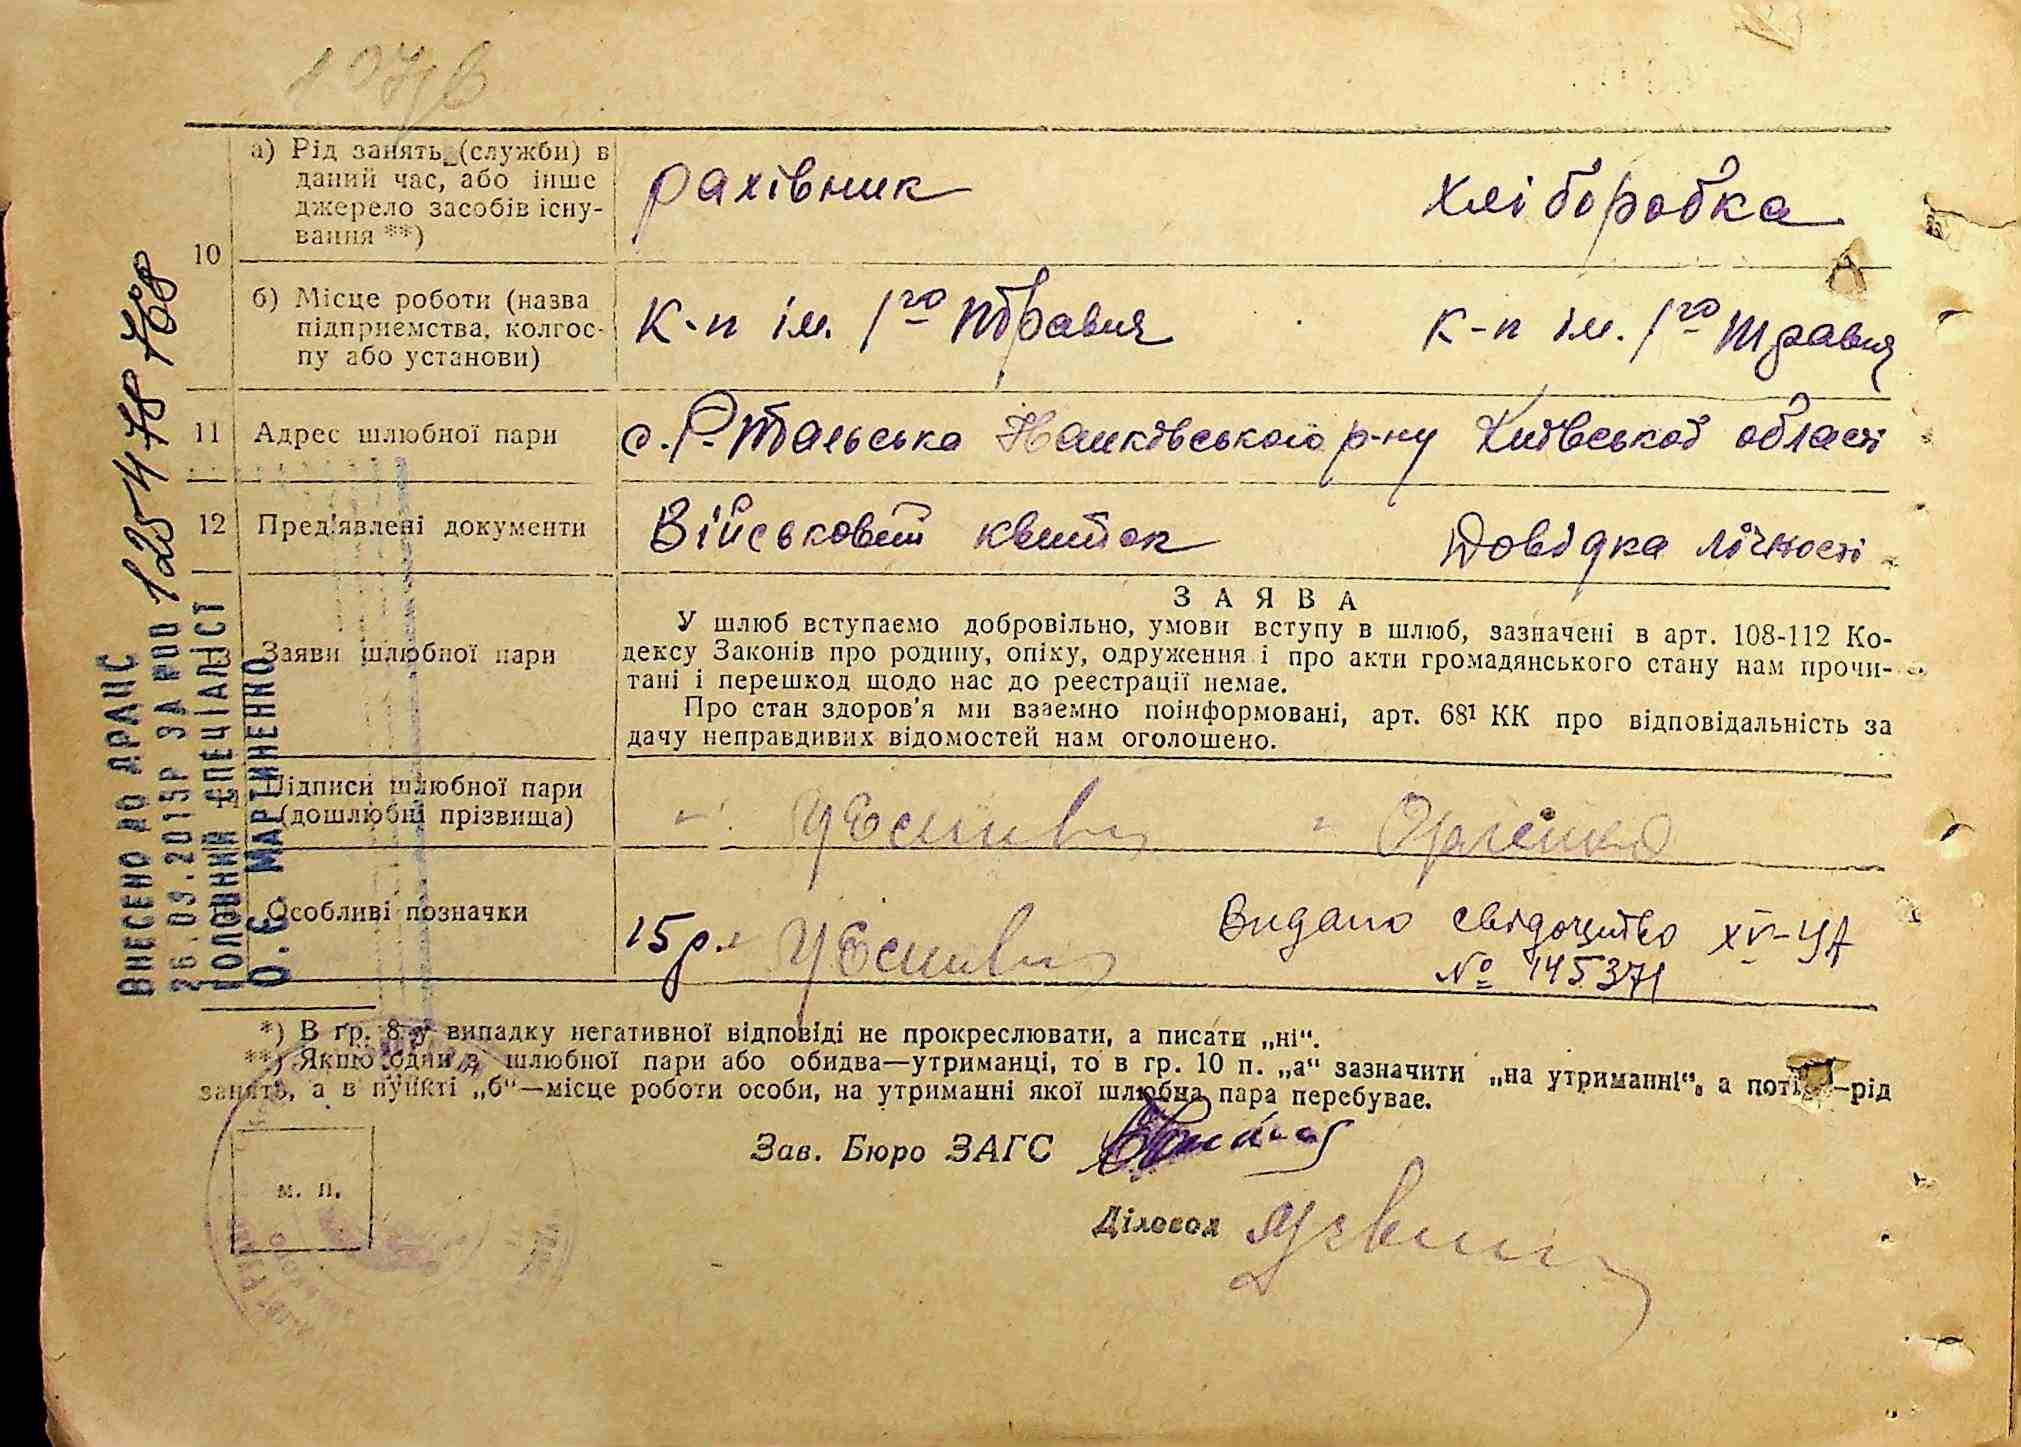 10
а) Рід занять (служби) в
даний час, або інше
джерело засобів існу-
вання **)
рахівник
хліборобка
б) Місце роботи (назва
підприємства, колгос-
пу або установи)
к-п ім. 1го травня
к-п ім. 1го травня
11
Адрес шлюбної пари
с. Р. Тальська Іванківського р-ну Київської області
12
Пред'явлені документи
Військовий квиток
Довідка лічності
Заяви шлюбної пари
ЗАЯВА
У шлюб вступаємо добровільно, умови вступу в шлюб, зазначені в арт. 108-112 Ко-
дексу Законів про родину, опіку, одруження і про акти громадянського стану нам прочи-
тані і перешкод щодо нас до реєстрації немає.
Про стан здоров'я ми взаємно поінформовані, арт. 68¹ КК про відповідальність за
дачу неправдивих відомостей нам оголошено.
Підписи шлюбної пари
(дошлюбні прізвища)
Особливі позначки
15 р.
Видано свідоцтво XV-УА
№ 145371
*) В гр. 8 у випадку негативної відповіді не прокреслювати, а писати „ні“.
**) Якщо один з шлюбної пари або обидва—утриманці, то в гр. 10 п. „а“ зазначити „на утриманні“, а потім—рід
занять, а в пункті „б“—місце роботи особи, на утриманні якої шлюбна пара перебуває.
Зав. Бюро ЗАГС
м. п.
Діловод
ВНЕСЕНО ДО ДРАЦС
26.09.2015Р ЗА №00 125478768
ГОЛОВНИЙ СПЕЦІАЛІСТ
О.Є. МАРТИНЕНКО